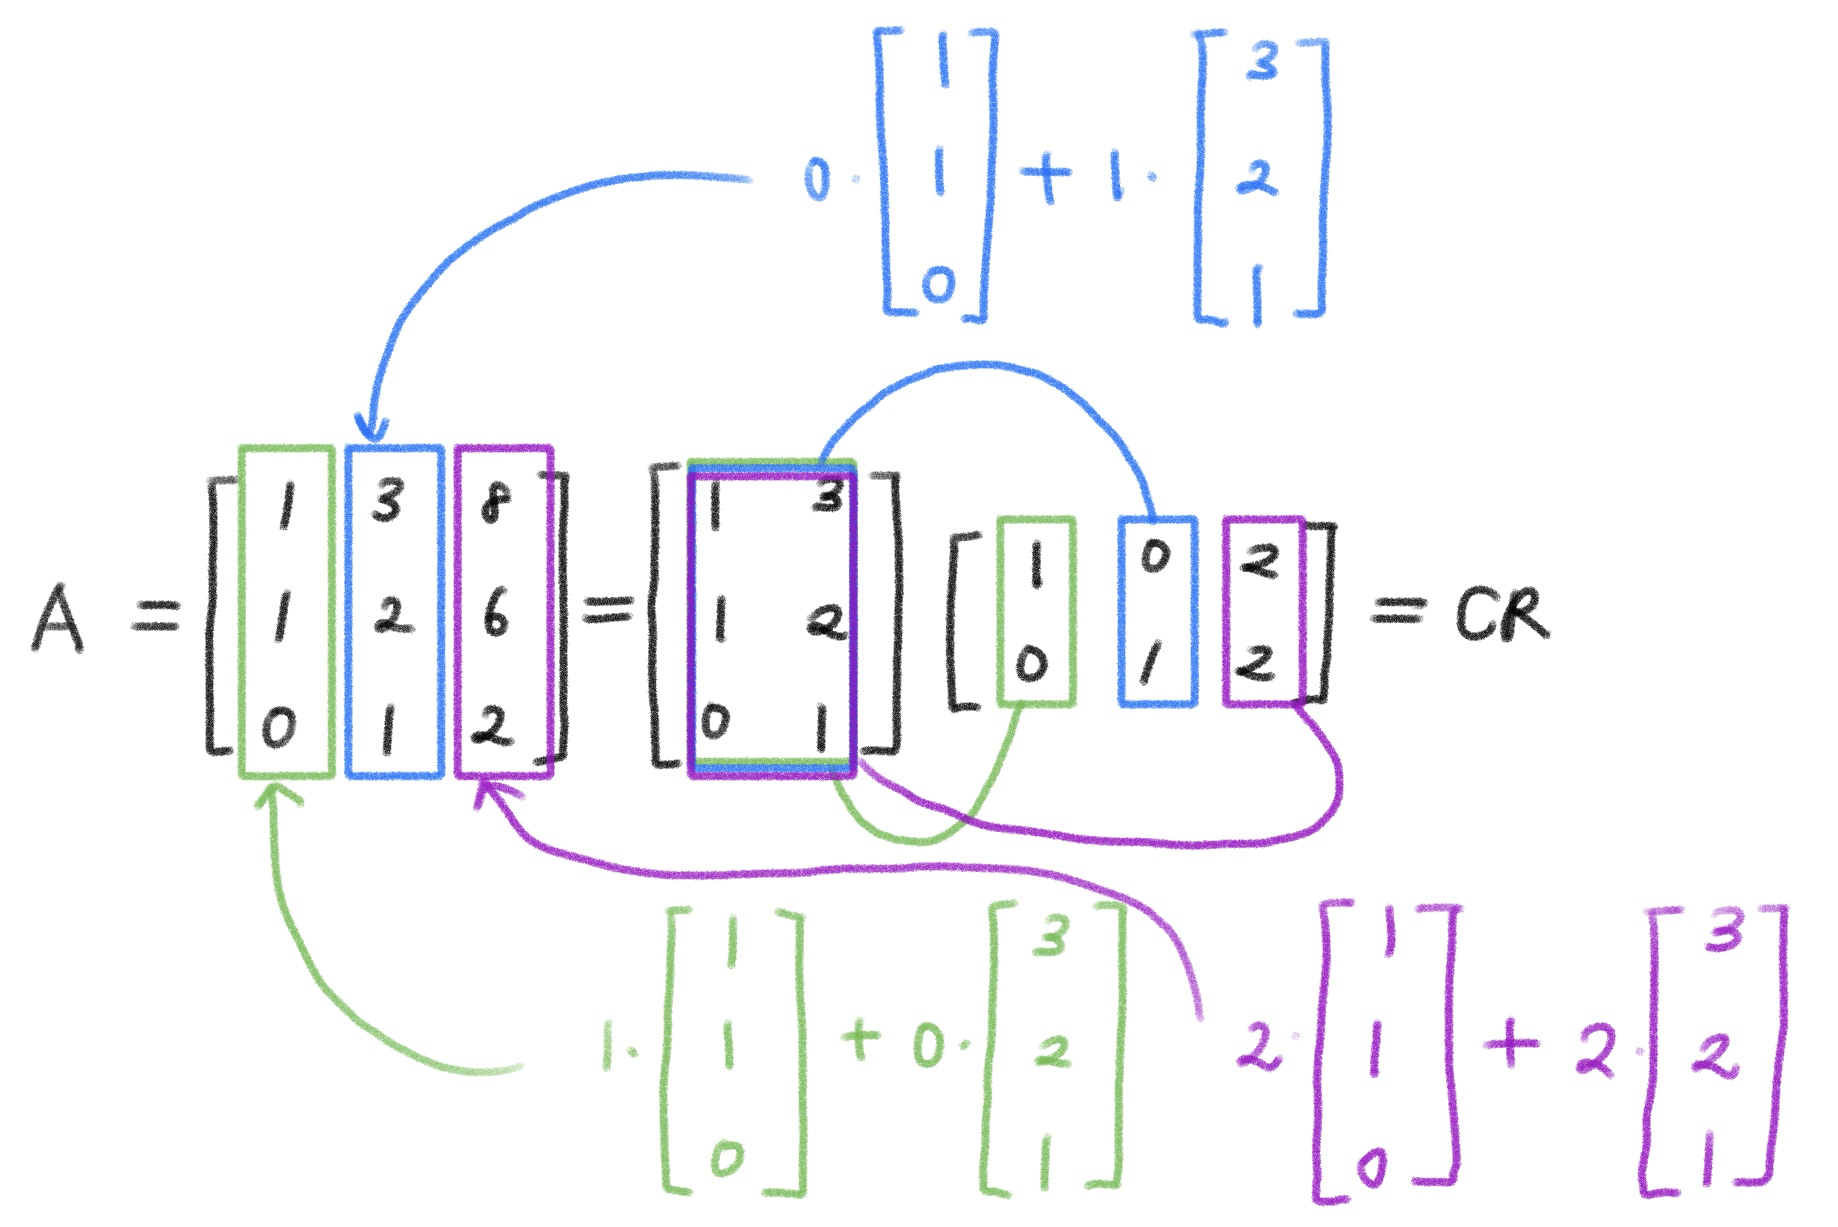 0 · [1 1 0] + 1 · [3 2 1]
A = [1 3 8
1 2 6
0 1 2] = [1 3
1 2
0 1] [1 0 2
0 1 2] = CR
1 · [1 1 0] + 0 · [3 2 1]
2 · [1 1 0] + 2 · [3 2 1]